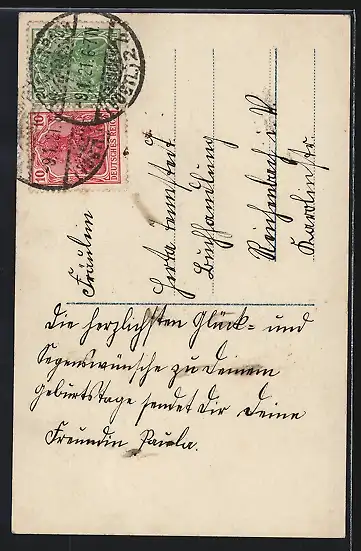 10
DEUTSCHES REICH
10
9.1.21. 6-7N
Fräulein
Herta
Buchhandlung
Reichenbach i. V.
Karolinstr.
Die herzlichsten Glück- und
Segenswünsche zu Deinem
Geburtstage sendet Dir Deine
Freundin Paula.